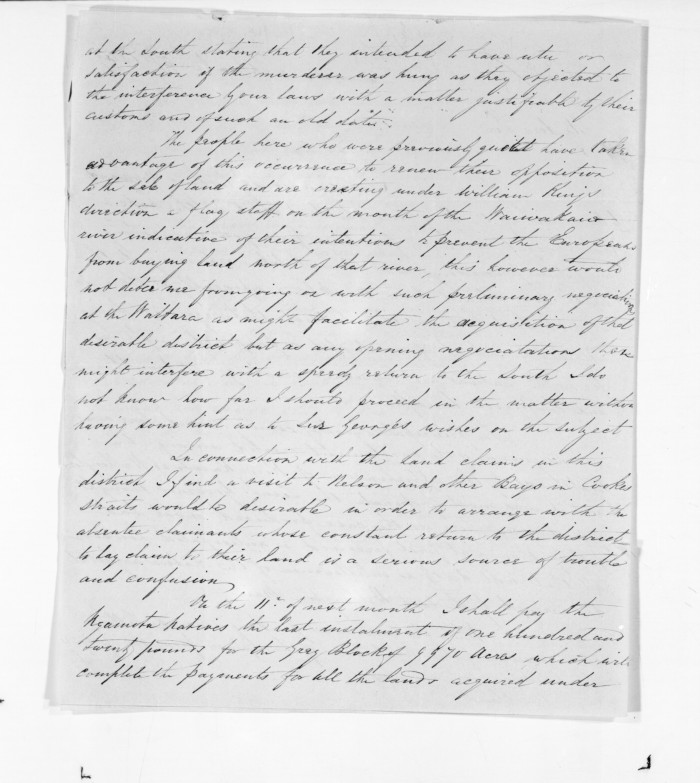 at the South stating that they intended to have utu or
satisfaction if the murderer was hung as they objected to
the interference of our laws with a matter justifiable by their
customs and of such an old date".
The people here who were previously quiet have taken
advantage of this occurrence to renew their opposition
to the sale of land and are erecting under William Kings
direction a flag staff on the mouth of the Waiwakaio
river indicative of their intentions to prevent the Europeans
from buying land north of that river, this however would
not deter me from going on with such preliminary negociations
at the Waitara as might facilitate the acquisition of that
desirable district but as any opening negociatations there
might interfere with a speedy return to the South I do
not know how far I should proceed in the matter without
having some hint as to Sir Georges wishes on the subject
In connection with the land claims in this
district I find a visit to Nelson and other Bays in Cookes
straits would be desirable in order to arrange with the
absentee claimants whose constant return to the district
to lay claim to their land is a serious source of trouble
and confusion,
On the 11th of next month I shall pay the
natives the last instalment of one hundred and
twenty pounds for the Grey Block of 9970 Acres which will
complete the payments for all the lands acquired under